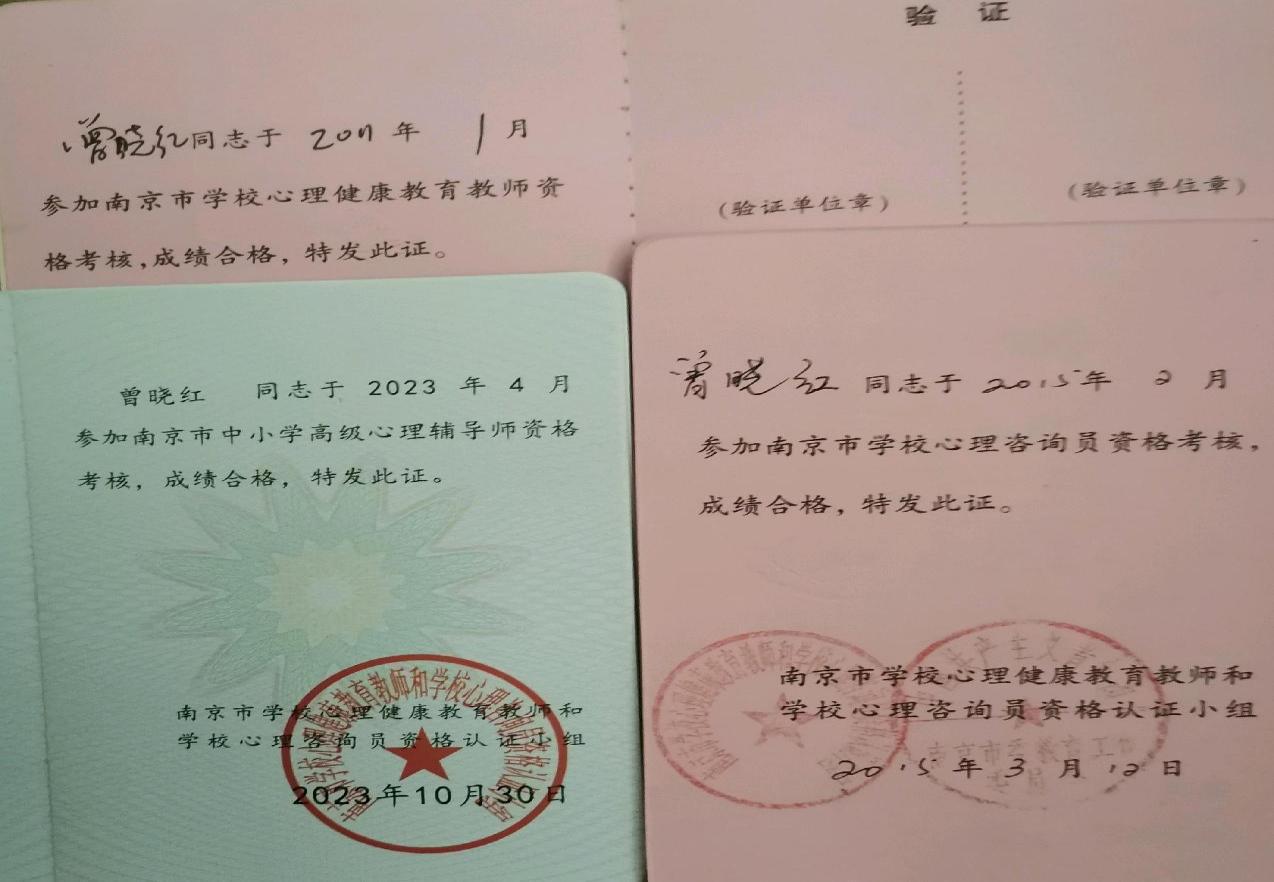 曾晓红同志于 2011 年 1 月
参加南京市学校心理健康教育教师资
格考核,成绩合格，特发此证。
验 证
(验证单位章)
(验证单位章)
曾晓红 同志于 2023 年 4 月
参加南京市中小学高级心理辅导师资格
考核，成绩合格，特发此证。
南京市学校心理健康教育教师和
学校心理咨询员资格认证小组
2023年10月30日
曾晓红 同志于 2015年 2 月
参加南京市学校心理咨询员资格考核，
成绩合格，特发此证。
南京市学校心理健康教育教师和
学校心理咨询员资格认证小组
2015 年 3 月 12 日